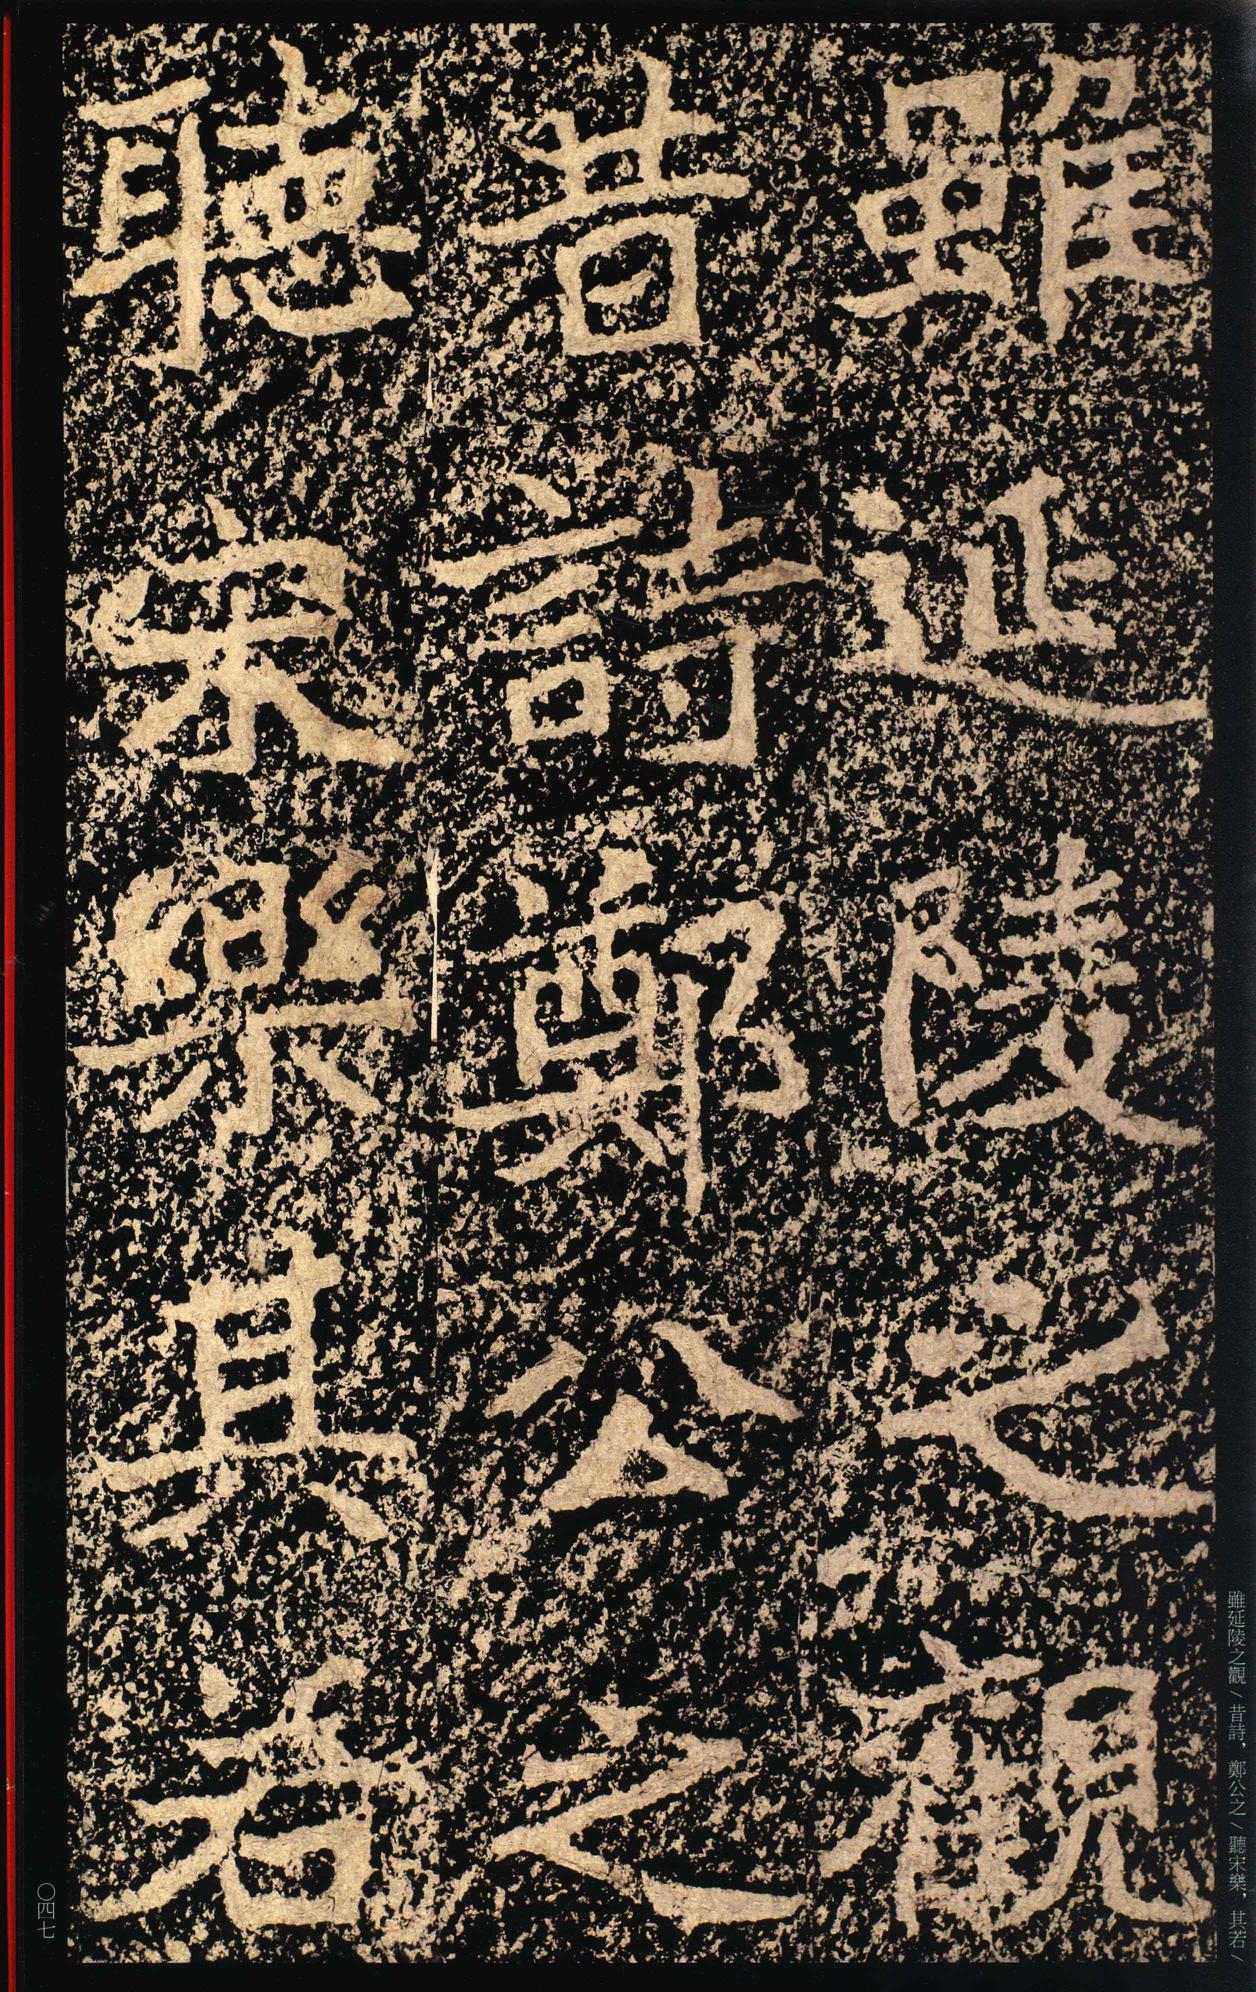 雖延陵之觀
昔詩鄭公之
聽宋樂其若
雖延陵之觀/昔詩，鄭公之/聽宋樂，其若/
〇四七